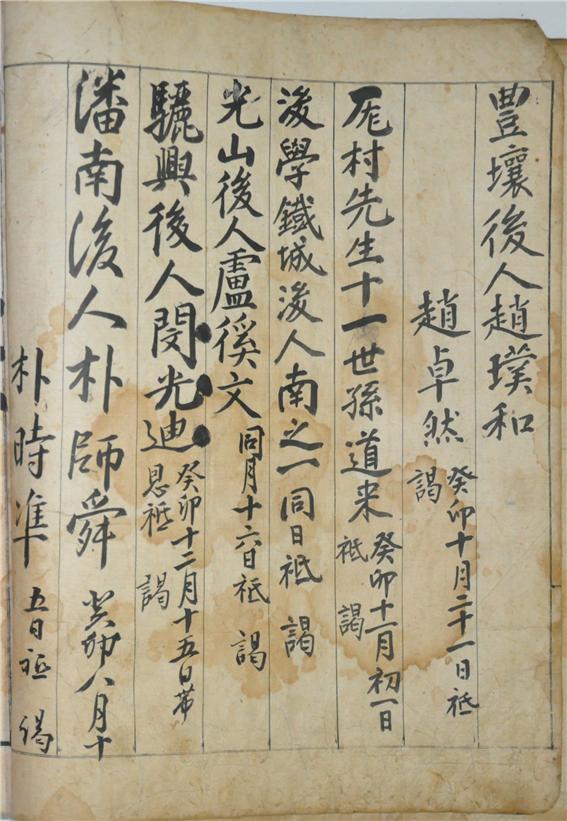 豊壤後人趙璞和
趙卓然 癸卯十月二十一日祗謁
厖村先生十一世孫道来 癸卯十一月初一日祗謁
後學鐵城後人南之一同日祗謁
光山後人盧徯文 同月十六日祗謁
驪興後人閔光迪 癸卯十二月十五日帶恩祗謁
潘南後人朴師舜 癸卯八月十
朴時準 五日祗謁